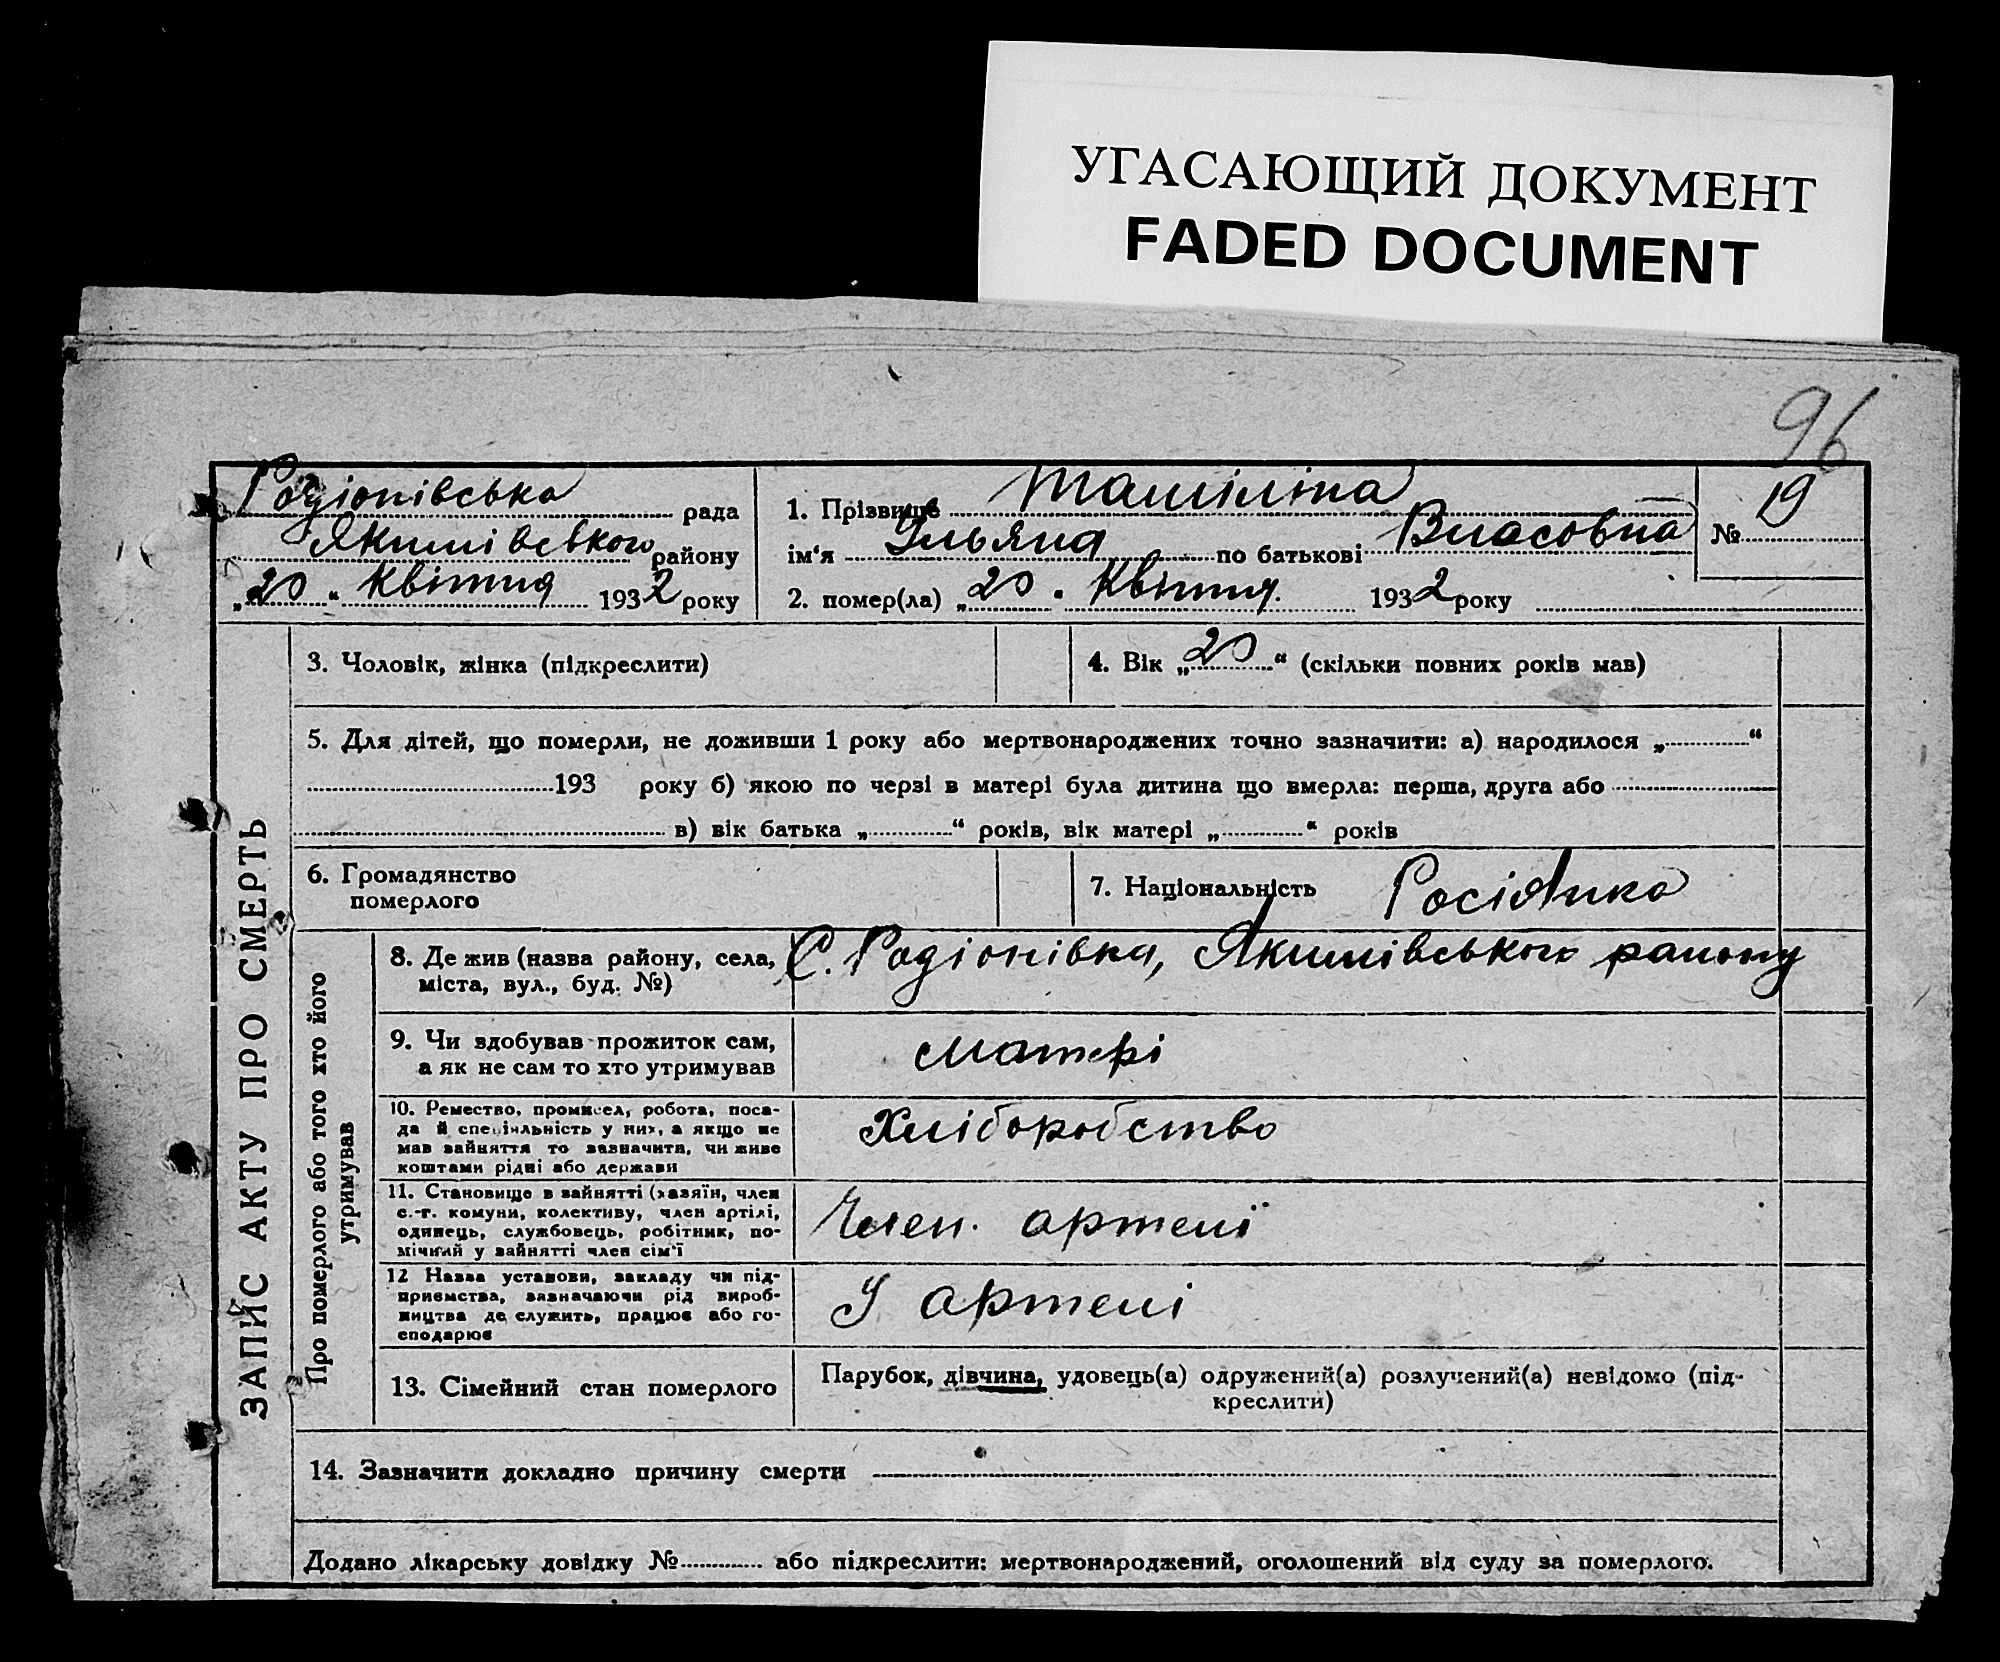 УГАСАЮЩИЙ ДОКУМЕНТ
FADED DOCUMENT
96
Родіонівська рада
Якимівського району
„20“ квітня 1932 року
1. Прізвище Машіліна
ім‘я Ульяна по батькові Власовна
2. помер(ла) „20. Квітня. 1932 року
№ 19
ЗАПИС АКТУ ПРО СМЕРТЬ
3. Чоловік, жінка (підкреслити)
4. Вік „20“ (скільки повних років мав)
5. Для дітей, що померли, не доживши 1 року або мертвонароджених точно зазначити: а) народилося „ “
193 року б) якою по черзі в матері була дитина що вмерла: перша, друга або
в) вік батька „ “ років, вік матері „ “ років
6. Громадянство
померлого
7. Національність Росіянка
Про померлого або того хто його
утримував
8. Де жив (назва району, села,
міста, вул., буд. №)
С. Родіонівка, Якимівського району
9. Чи здобував прожиток сам,
а як не сам то хто утримував
матері
10. Ремество, промисел, робота, поса-
да й спеціяльність у них, а якщо не
мав зайняття то зазначити, чи живе
коштами рідні або держави
Хліборобство
11. Становище в зайнятті (хазяїн, член
с.-г. комуни, колективу, член артілі,
одинець, службовець, робітник, по-
мічний у зайнятті член сім'ї
Член. артелі
12 Назва установи, закладу чи під-
приємства, зазначаючи рід вироб-
ництва де служить, працює або го-
сподарює
У артелі
13. Сімейний стан померлого
Парубок, дівчина, удовець(а) одружений(а) розлучений(а) невідомо (під-
креслити)
14. Зазначити докладно причину смерти
Додано лікарську довідку № або підкреслити: мертвонароджений, оголошений від суду за померлого.